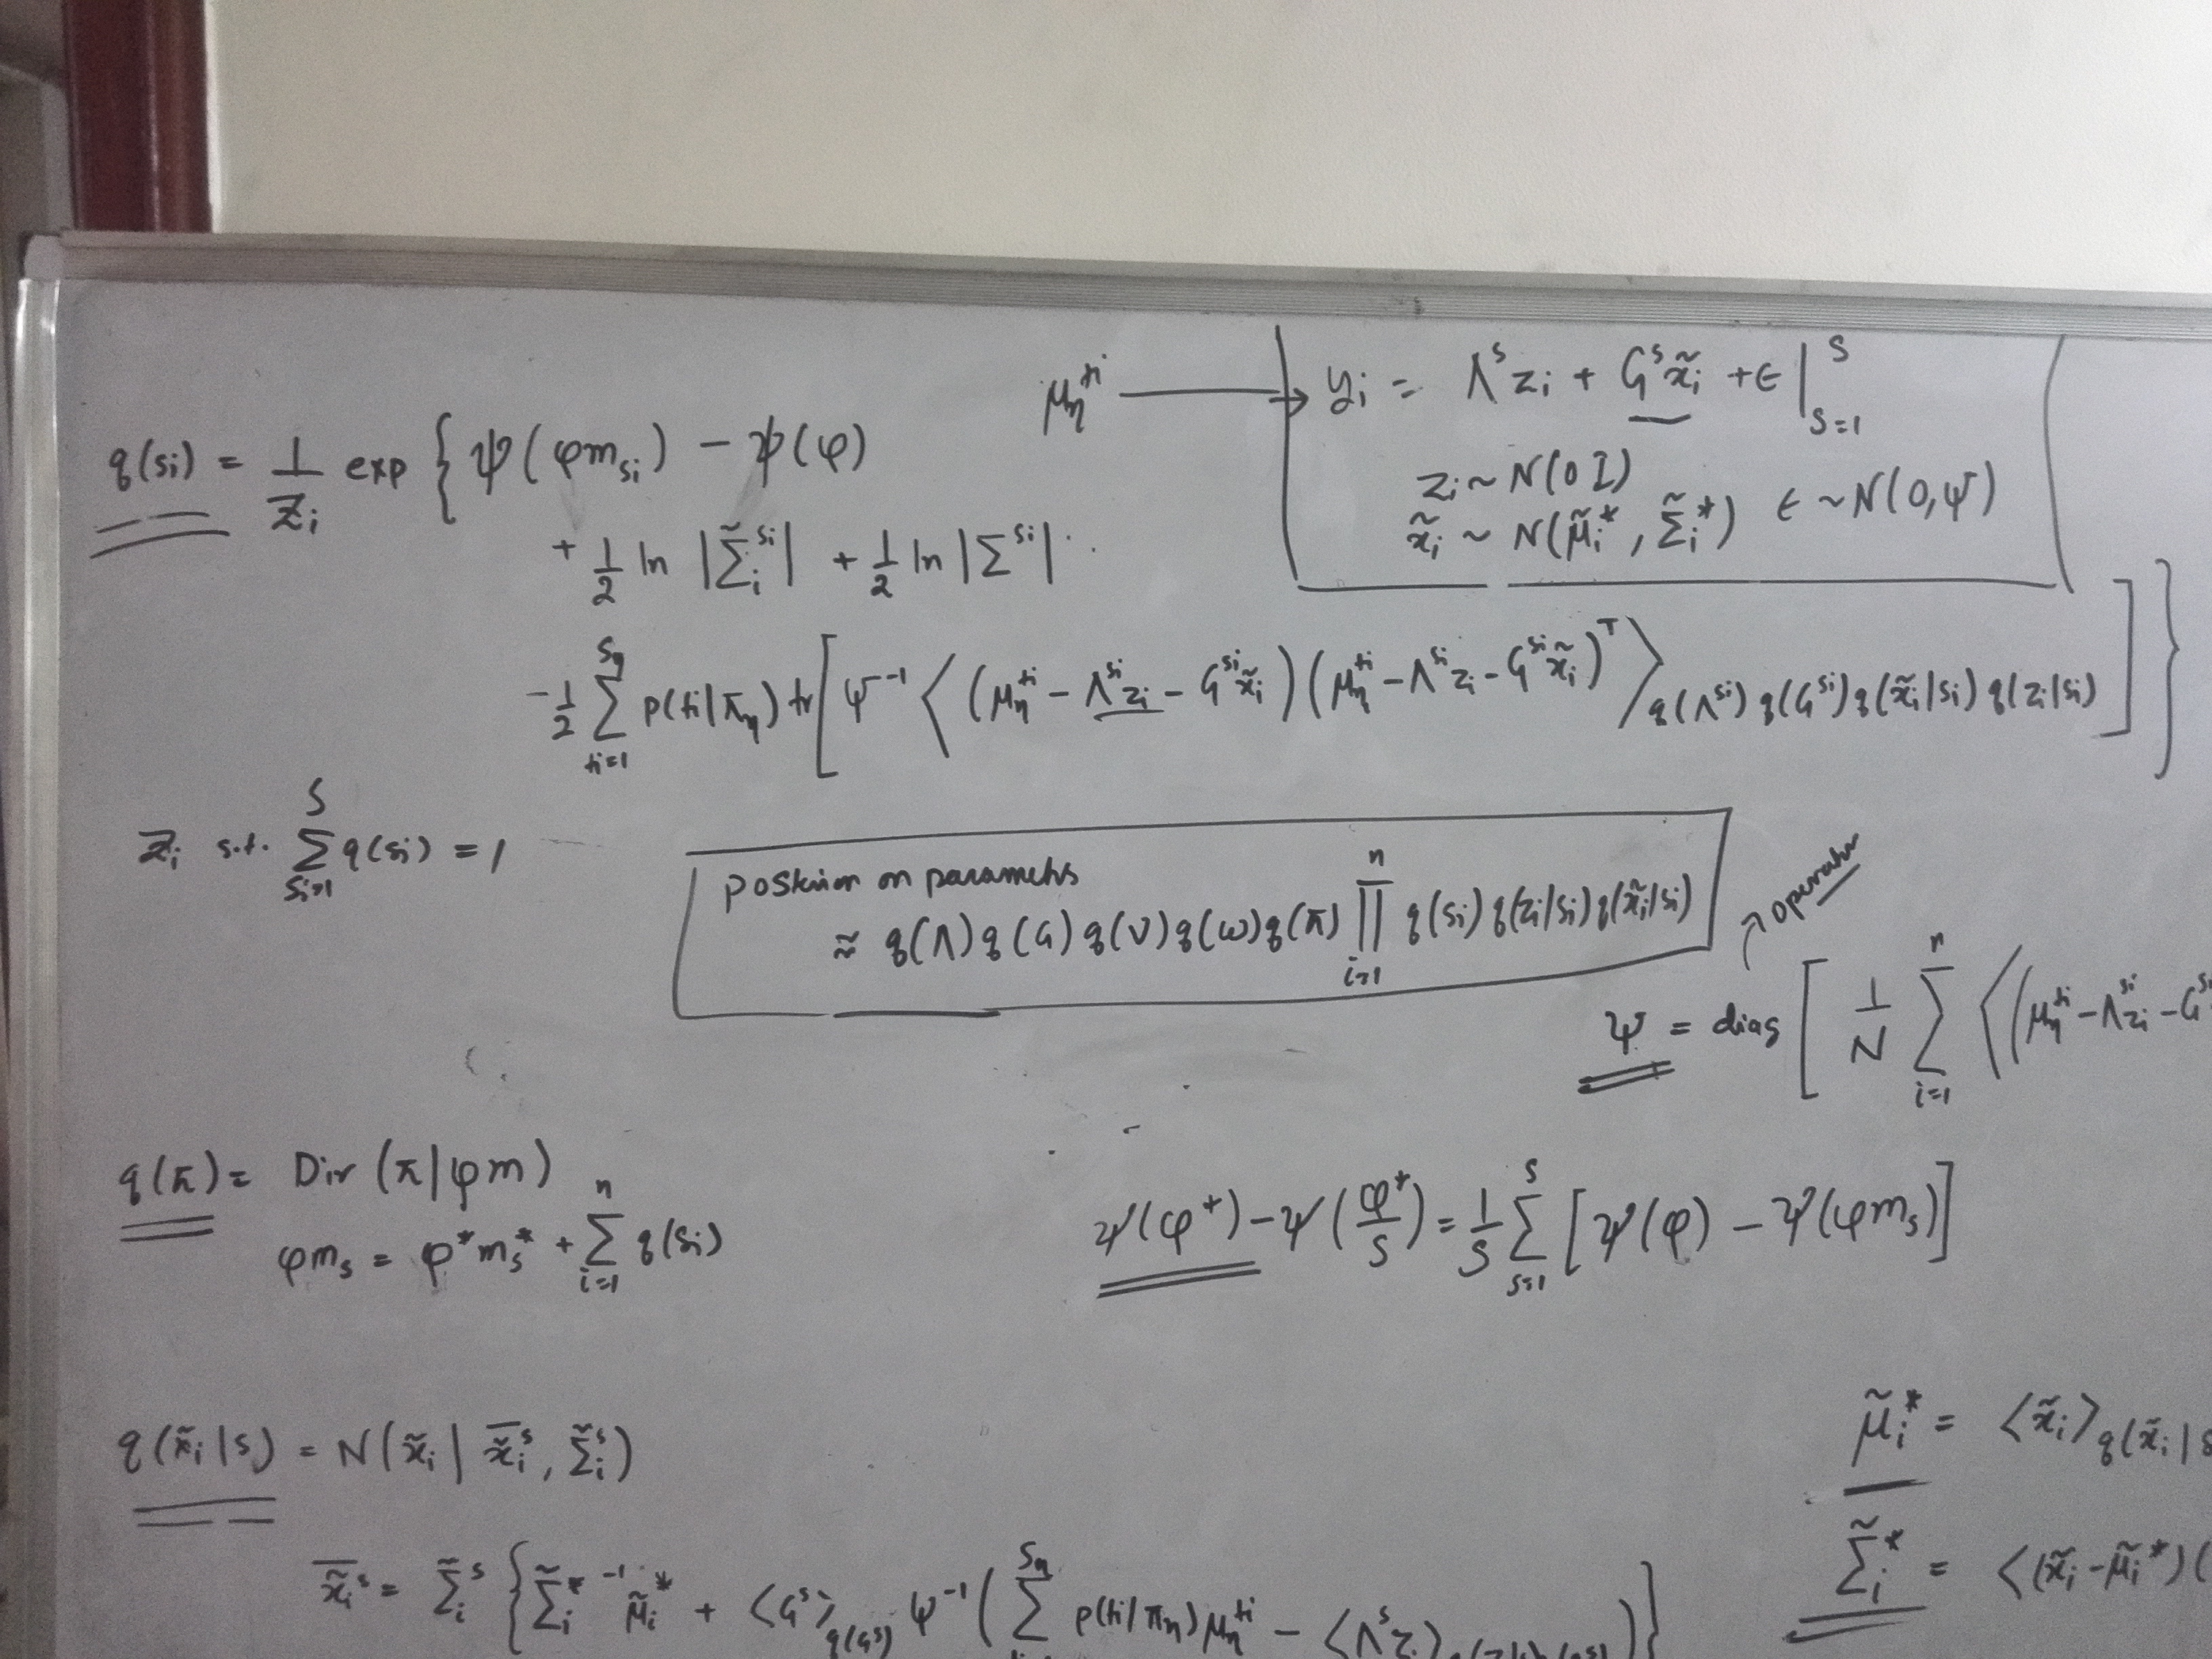 μ_η^{ti} → y_i = Λ^s z_i + G^s x̃_i + ϵ |_{s=1}^{S}
z_i ~ N(0 I)
x̃_i ~ N(μ̃_i^*, Σ̃_i^*) ϵ ~ N(0, Ψ)
q(s_i) = 1/Z_i exp { ψ(φm_{s_i}) − ψ(φ)
+ 1/2 ln |Σ̃_i^{s_i}| + 1/2 ln |Σ^{s_i}|
− 1/2 Σ_{t_i=1}^{S_η} p(t_i|π_η) tr [ Ψ^{-1} ⟨ (μ_η^{t_i} − Λ^{s_i} z_i − G^{s_i} x̃_i) (μ_η^{t_i} − Λ^{s_i} z_i − G^{s_i} x̃_i)^T ⟩_{q(Λ^{s_i}) q(G^{s_i}) q(x̃_i|s_i) q(z_i|s_i)} ] }
Z_i s.t. Σ_{s_i=1}^{S} q(s_i) = 1
posterior on parameters
≈ q(Λ) q(G) q(ν) q(ω) q(π) ∏_{i=1}^{n} q(s_i) q(z_i|s_i) q(x̃_i|s_i)
operator
Ψ = diag [ 1/N Σ_{i=1}^{n} ⟨ (μ_η^{t_i} − Λ^{s_i} z_i − G^{s_i}
q(π) = Dir (π|φm)
φm_s = φ^* m_s^* + Σ_{i=1}^{n} q(s_i)
ψ(φ^*) − ψ(φ^*/S) = 1/S Σ_{s=1}^{S} [ψ(φ) − ψ(φm_s)]
q(x̃_i|s) = N(x̃_i | x̃̄_i^s, Σ̃_i^s)
x̃̄_i^s = Σ̃_i^s { Σ̃_i^{*-1} μ̃_i^* + ⟨G^s⟩_{q(G^s)} Ψ^{-1} ( Σ^{S_η} p(t_i|π_η) μ_η^{t_i} − ⟨Λ^s z_i⟩ ) }
μ̃_i^* = ⟨x̃_i⟩_{q(x̃_i|s
Σ̃_i^* = ⟨(x̃_i − μ̃_i^*)(